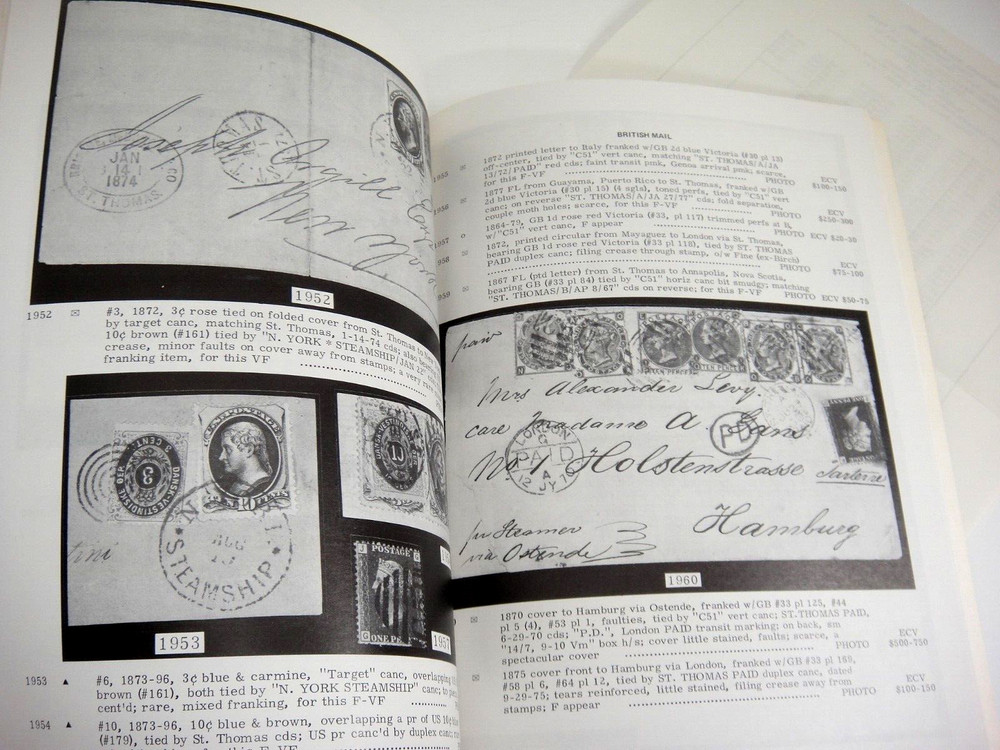 JAN
14
1874
ST. THOMAS
CO
Joseph
1952
1952
#3, 1872, 3¢ rose tied on folded cover from St. Thomas to New
by target canc, matching St. Thomas, 1-14-74 cds; also
10¢ brown (#161) tied by "N. YORK * STEAMSHIP/JAN 22"
crease, minor faults on cover away from stamps; a very rare
franking item, for this VF
CENT
3
DANSK-VESTINDISKE
U.S. POSTAGE
10 CENTS
N
AUG
STEAMSHIP
1953
POSTAGE
J
G
G ONE PE
1957
1953
#6, 1873-96, 3¢ blue & carmine, "Target" canc, overlapping
brown (#161), both tied by "N. YORK STEAMSHIP" canc; to
cent'd; rare, mixed franking, for this F-VF
1954
#10, 1873-96, 10¢ blue & brown, overlapping a pr of US 10¢
(#179), tied by St. Thomas cds; US pr canc'd by duplex canc;
BRITISH MAIL
1872 printed letter to Italy franked w/GB 2d blue Victoria (#30 pl 13)
off-center, tied by "C51" vert canc, matching "ST. THOMAS/A/JA
13/72/PAID" red cds; faint transit pmk, Genoa arrival pmk; scarce,
for this F-VF
PHOTO
ECV
$100-150
1877 FL from Guayama, Puerto Rico to St. Thomas, franked w/GB
2d blue Victoria (#30 pl 15) (4 sgls), toned perfs, tied by "C51" vert
canc; on reverse "ST. THOMAS/A/JA 27/77" cds; fold separation,
couple moth holes; scarce, for this F-VF
PHOTO
ECV
$250-300
1957
1864-79, GB 1d rose red Victoria (#33, pl 117) trimmed perfs at B,
w/"C51" vert canc, F appear
PHOTO ECV $25-30
1872, printed circular from Mayaguez to London via St. Thomas,
bearing GB 1d rose red Victoria (#33 pl 118), tied by ST. THOMAS
PAID duplex canc; filing crease through stamp, o/w Fine (ex-Birch)
PHOTO
ECV
$75-100
1867 FL (ptd letter) from St. Thomas to Annapolis, Nova Scotia,
bearing GB (#33 pl 84) tied by "C51" horiz canc bit smudgy; matching
"ST. THOMAS/B/AP 8/67" cds on reverse; for this F-VF
PHOTO ECV $50-75
Mrs Alexander Levy.
care Madame A. Gans
No 1 Holstenstrasse
Hamburg
pr Steamer
via Ostende
LONDON
G
PAID
A
12 JY 70
PD
1960
1870 cover to Hamburg via Ostende, franked w/GB #33 pl 125, #44
pl 5 (4), #53 pl 1, faulties, tied by "C51" vert canc; ST.THOMAS PAID,
6-29-70 cds; "P.D.", London PAID transit marking; on back, sm
"14/7, 9-10 Vm" box h/s; cover little stained, faults; scarce, a
spectacular cover
PHOTO
ECV
$500-750
1875 cover front to Hamburg via London, franked w/GB #33 pl 169,
#58 pl 6, #64 pl 12, tied by ST THOMAS PAID duplex canc, dated
9-29-75; tears reinforced, little stained, filing crease away from
stamps; F appear
PHOTO
ECV
$100-150